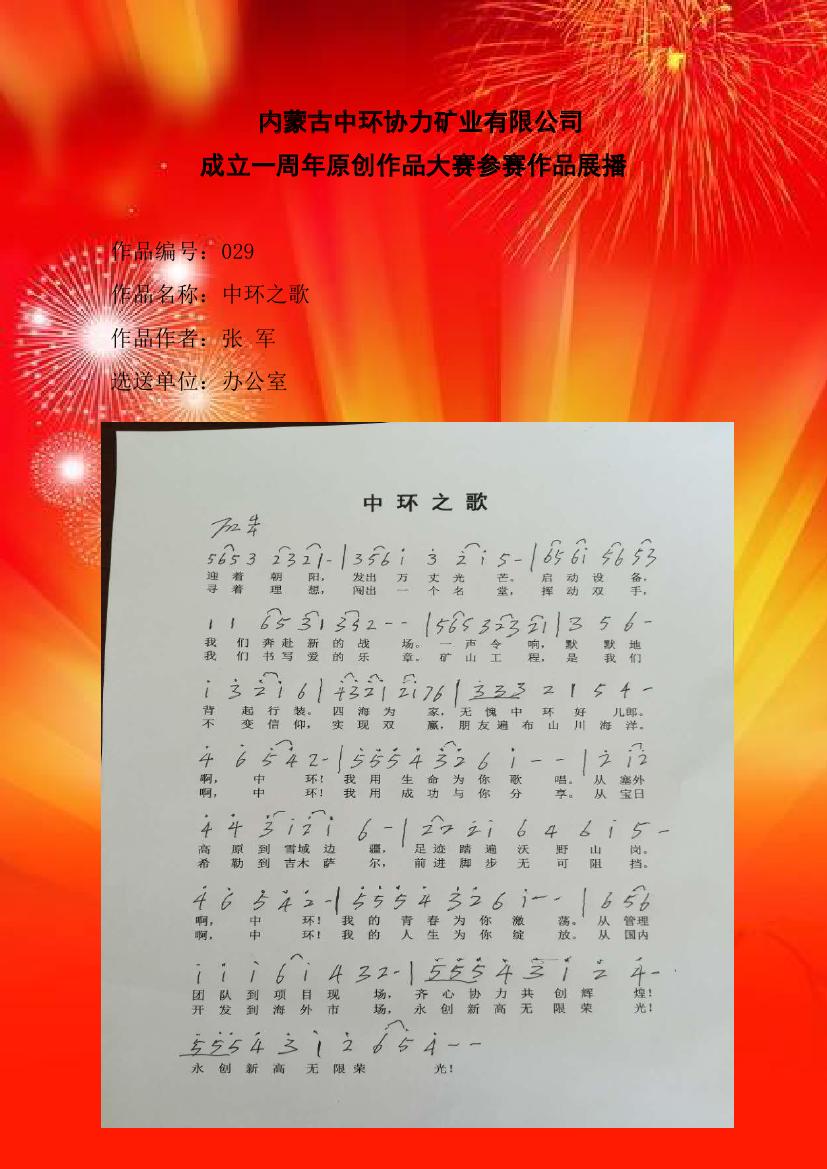 内蒙古中环协力矿业有限公司
成立一周年原创作品大赛参赛作品展播
作品编号：029
作品名称：中环之歌
作品作者：张 军
选送单位：办公室
中环之歌
5653 2321- | 356i 3 2i 5- | 656i 5653
迎着 朝 阳， 发出 万 丈光 芒。 启动设 备，
寻着 理 想， 闯出 一 个名 堂， 挥动双 手，
11 6531 332-- | 5653 2321 | 3 5 6-
我们奔赴新的战 场。一声令 响，默 默地
我们书写爱的乐 章。矿山工 程，是 我们
i 3 2i 6 | 4321 2i76 | 333 2 1 5 4-
背 起行 装。四海为 家，无愧中环好 儿郎。
不 变信 仰，实现双 赢，朋友遍布山川海洋。
4 6 54 2- | 555 4 32 6 i-- | 2 i2
啊， 中 环！我用生命为你歌 唱。从塞外
啊， 中 环！我用成功与你分 享。从宝日
4 4 3i2i 6- | 22 2i 6 4 6 i 5-
高原到雪域边 疆，足迹踏遍沃野山岗。
希勒到吉木萨 尔，前进脚步无可阻挡。
4 6 5 4 2- | 555 4 326 i-- | 656
啊， 中 环！我的青春为你激 荡。从管理
啊， 中 环！我的人生为你绽 放。从国内
i i i 6i 4 32- | 555 4 31 2 4-
团队到项目现 场，齐心协力共创辉 煌！
开发到海外市 场，永创新高无限荣 光！
555 4 3 1 2 65 4--
永创新高无限荣 光！